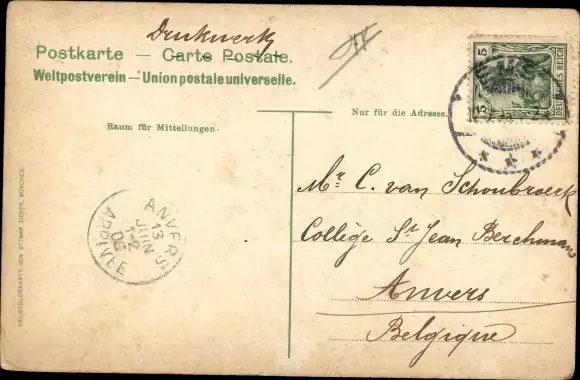 Drukwerk
Postkarte — Carte Postale.
Weltpostverein — Union postale universelle.
5
5
DEUTSCHES REICH
Nur für die Adresse.
Raum für Mitteilungen.
Mr. C. van Schoubroeck
Collège St Jean Berchmans
Anvers
Belgique
ANVERS
13
JUIN
1-2
06
ARRIVÉE
HELIOCOLORKARTE VON OTTMAR ZIEHER, MÜNCHEN.